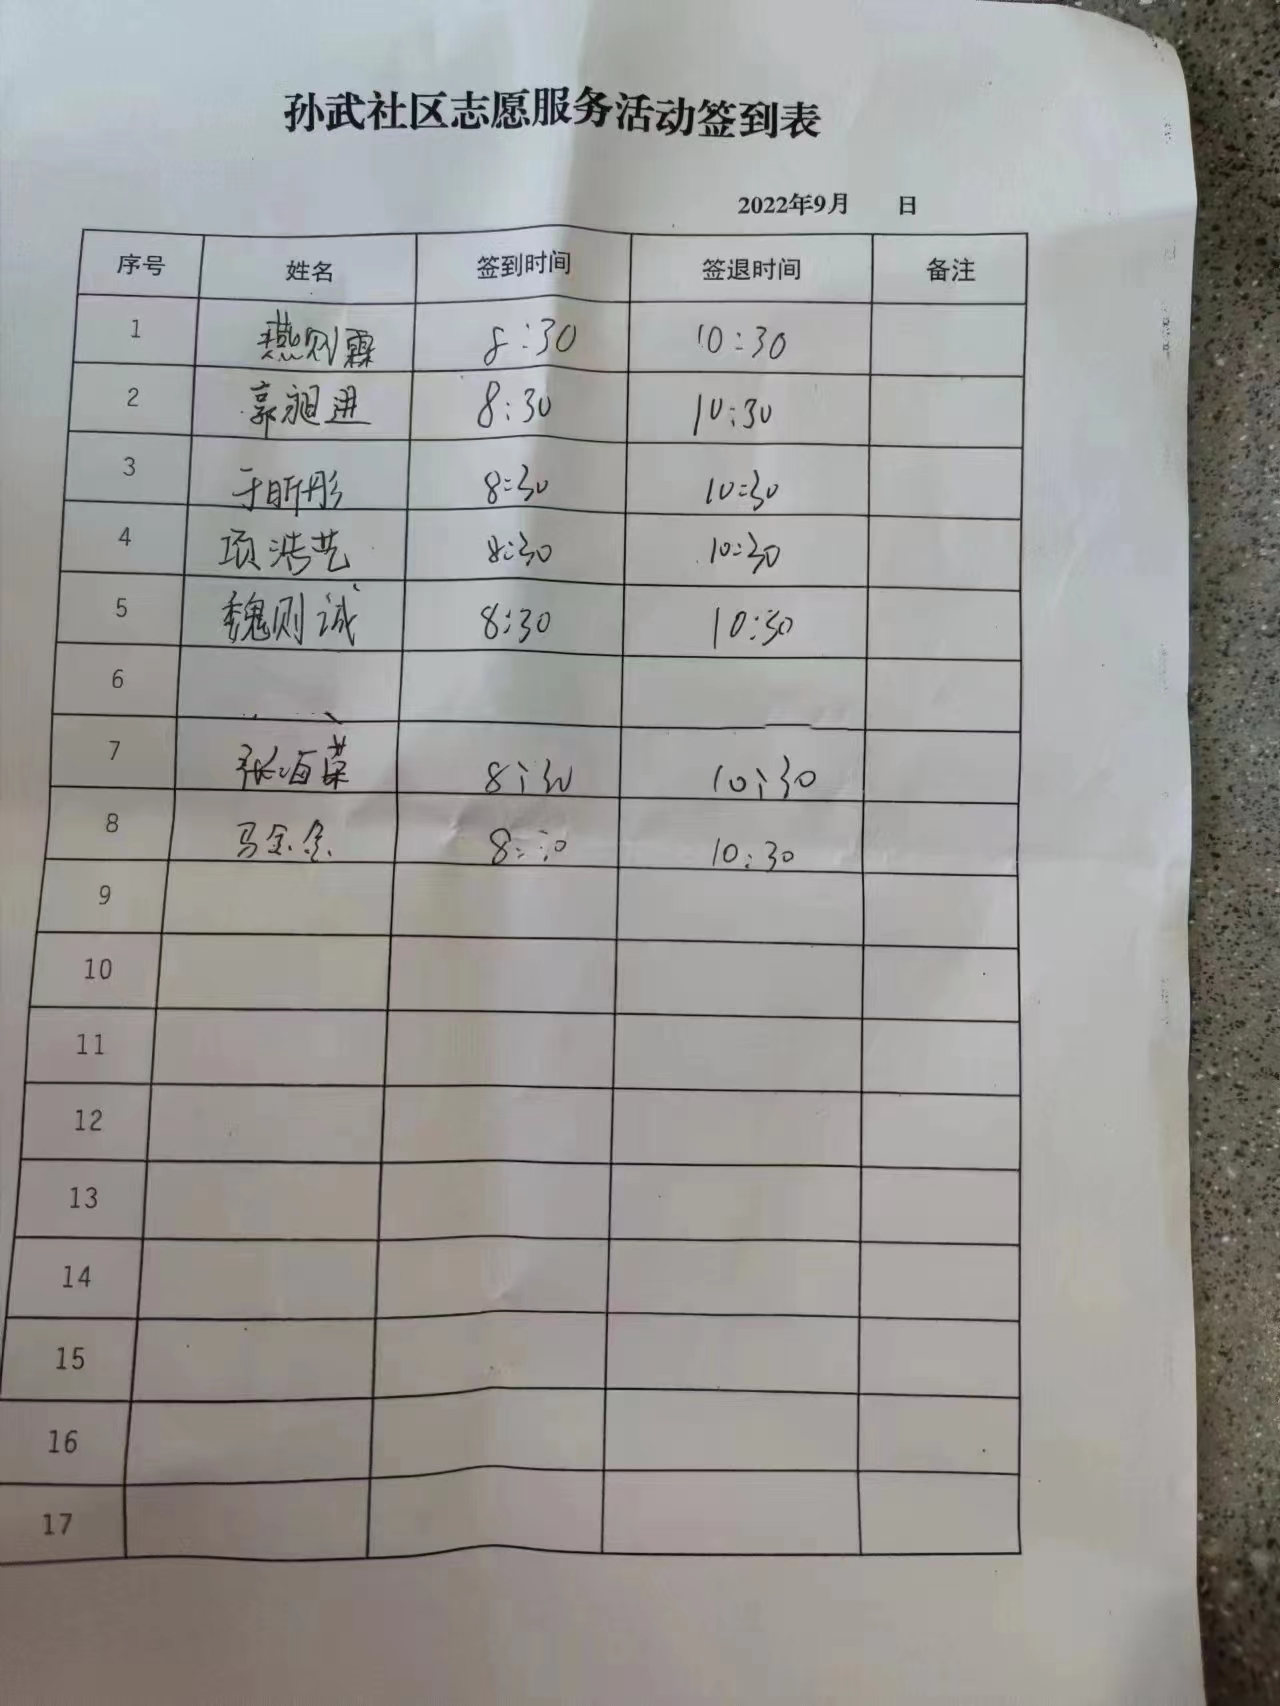 孙武社区志愿服务活动签到表
2022年9月 日
序号 姓名 签到时间 签退时间 备注
1 燕则霖 8:30 10:30
2 郭昶进 8:30 10:30
3 于昕彤 8:30 10:30
4 项浩艺 8:30 10:30
5 魏则诚 8:30 10:30
6
7 张海荣 8:30 10:30
8 马 8:30 10:30
9
10
11
12
13
14
15
16
17